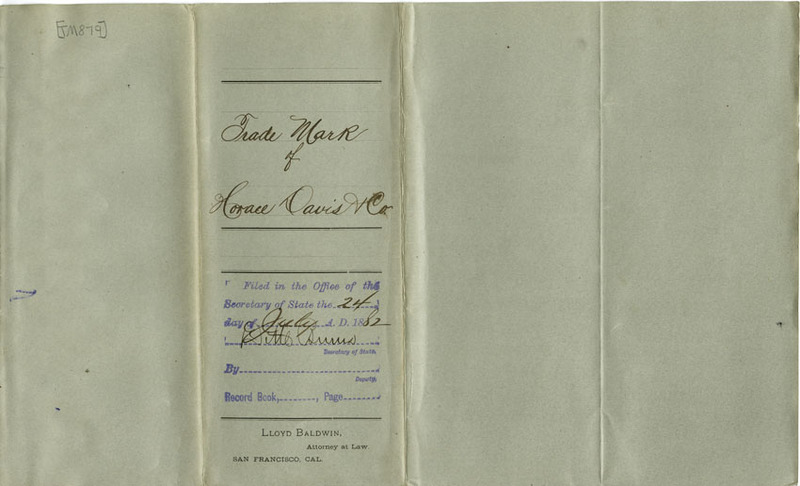 [TM879]
Trade Mark
of
Horace Davis & Co
Filed in the Office of the
Secretary of State the 24
day of July A. D. 1882
Secretary of State.
By
Deputy.
Record Book, , Page
LLOYD BALDWIN,
Attorney at Law.
SAN FRANCISCO, CAL.